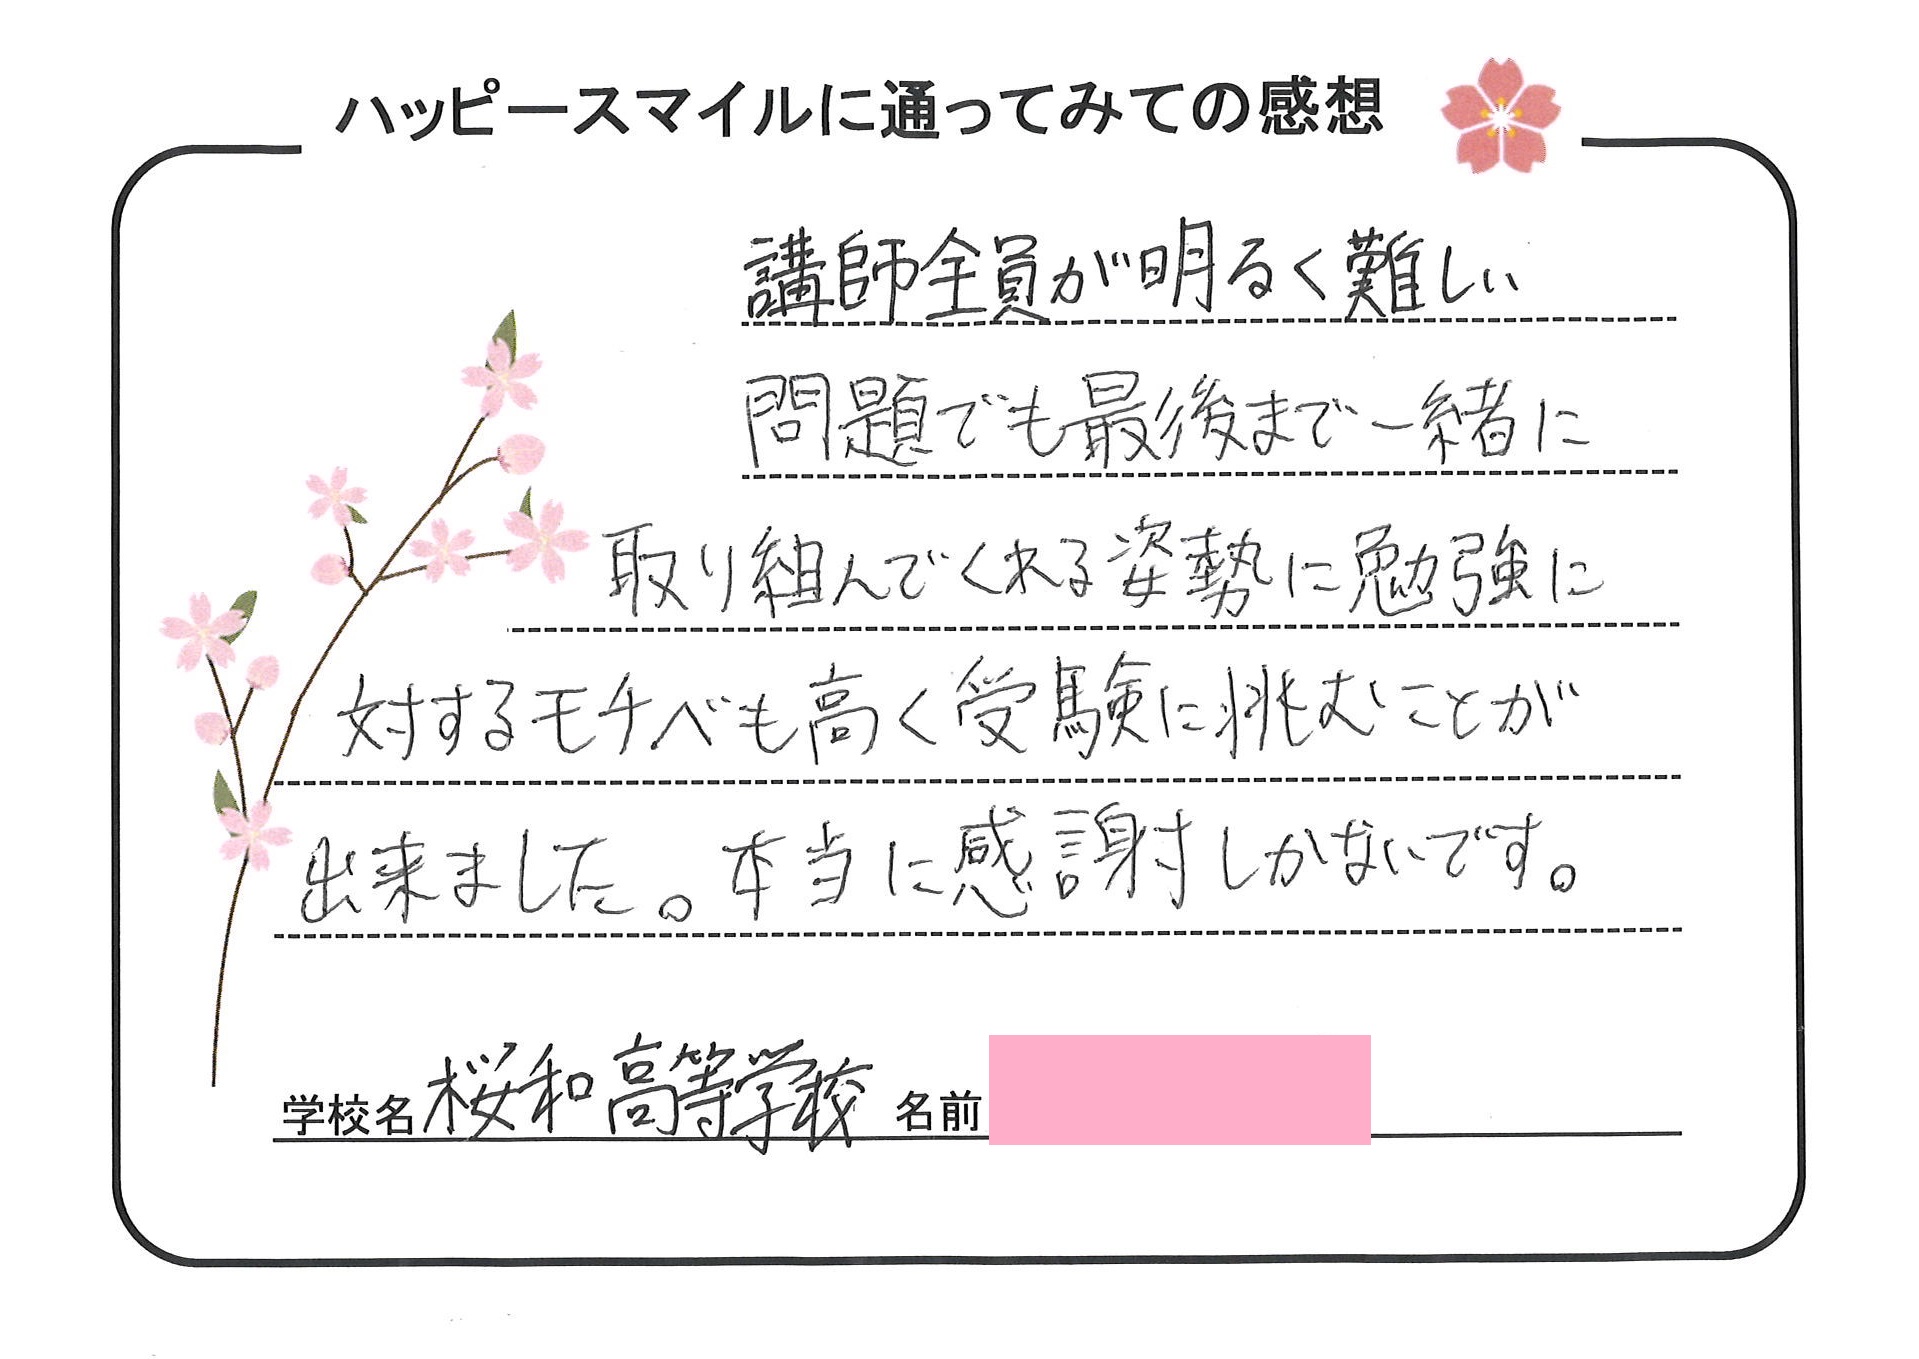 ハッピースマイルに通ってみての感想
講師全員が明るく難しい
問題でも最後まで一緒に
取り組んでくれる姿勢に勉強に
対するモチベも高く受験に挑むことが
出来ました。本当に感謝しかないです。
学校名 桜和高等学校 名前